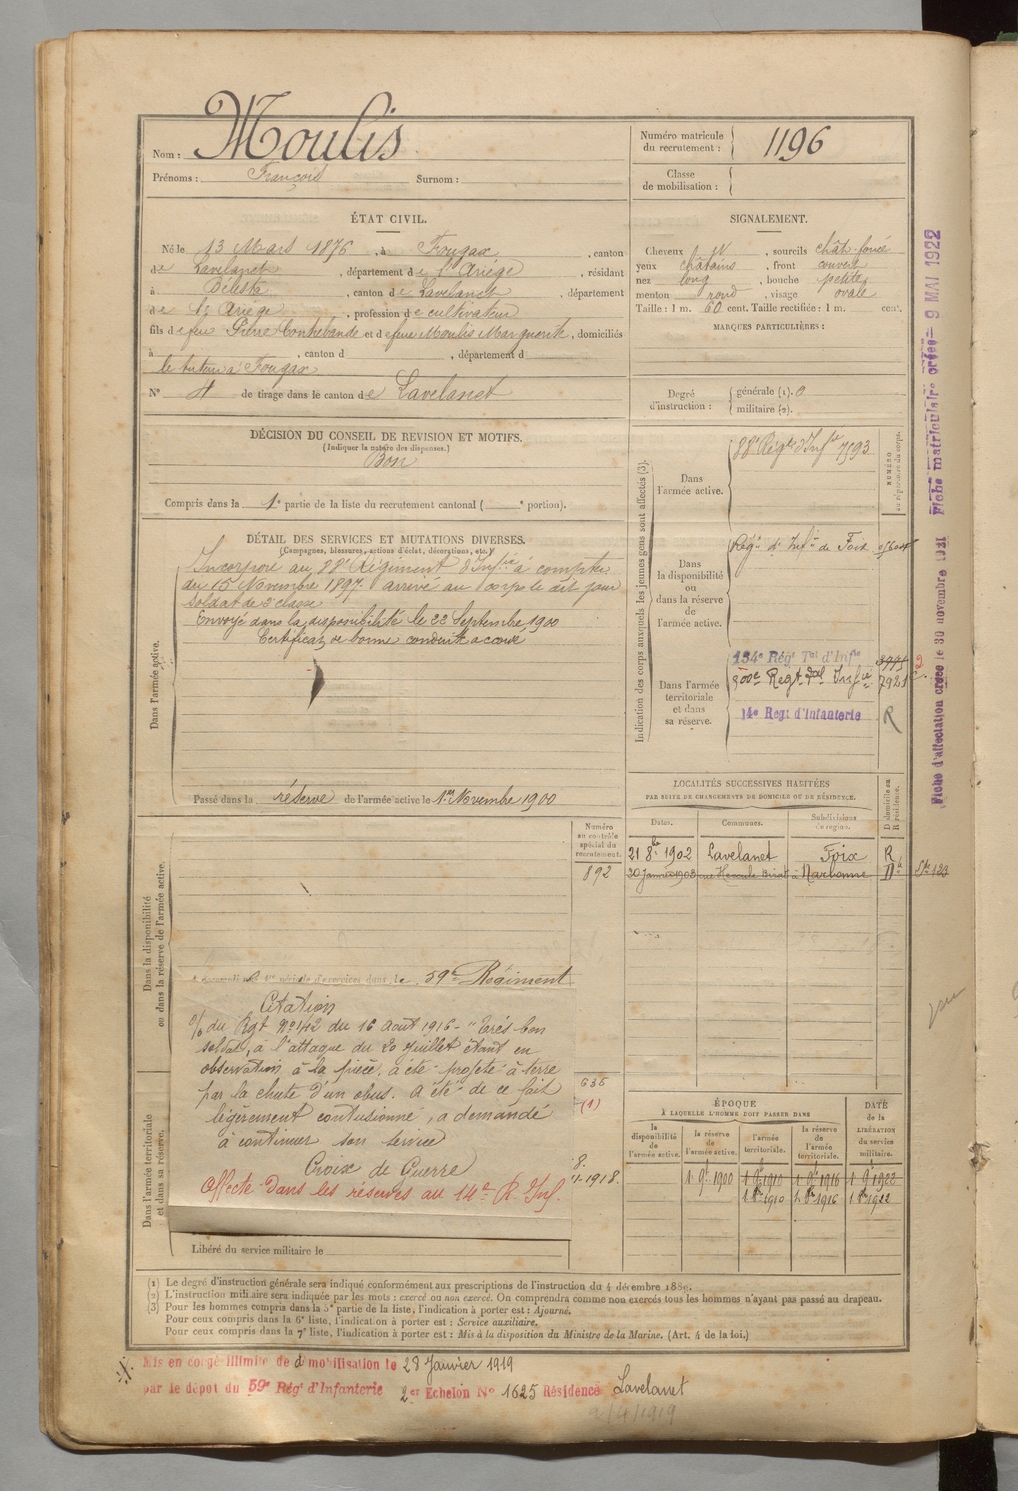 Nom : Moulis
Prénoms : François Surnom :
Numéro matricule du recrutement : 1196
Classe de mobilisation :
ÉTAT CIVIL.
Né le 13 Mars 1876, à Fougax, canton
de Lavelanet, département de l'Ariège, résidant
à Bélesta, canton de Lavelanet, département
de l'Ariège, profession de cultivateur
fils de feu Pierre Contrebande et de feue Moulis Marguerite, domiciliés
à , canton d , département d
le tuteur à Fougax
N° 4 de tirage dans le canton de Lavelanet
SIGNALEMENT.
Cheveux N, sourcils chât. foncé
yeux châtains, front couvert
nez long, bouche petite
menton rond, visage ovale
Taille : 1 m. 60 cent. Taille rectifiée : 1 m. cent.
MARQUES PARTICULIÈRES :
Degré d'instruction : générale (1). 0
militaire (2).
DÉCISION DU CONSEIL DE REVISION ET MOTIFS.
(Indiquer la nature des dispenses.)
Bon
Compris dans la 1e partie de la liste du recrutement cantonal ( e portion).
DÉTAIL DES SERVICES ET MUTATIONS DIVERSES.
(Campagnes, blessures, actions d'éclat, décorations, etc.)
Dans l'armée active.
Incorporé au 88e Régiment d'Infie à compter
du 15 Novembre 1897. arrivé au corps le dit jour
soldat de 2e classe
Envoyé dans la disponibilité le 22 Septembre 1900
Certificat de bonne conduite accordé
Passé dans la réserve de l'armée active le 1er Novembre 1900
Indication des corps auxquels les jeunes gens sont affectés (3).
NUMÉRO au répertoire du corps.
Dans l'armée active.
88e Régt d'Infie 7593
Dans la disponibilité ou dans la réserve de l'armée active.
Régt d'Infie de Foix
Dans l'armée territoriale et dans sa réserve.
134e Régt Tal d'Infie
7921
14e Regt d'Infanterie R
Fiche d'affectation créée le 30 novembre 1921 Fiche matriculaire créée 9 MAI 1922
LOCALITÉS SUCCESSIVES HABITÉES
PAR SUITE DE CHANGEMENTS DE DOMICILE OU DE RÉSIDENCE.
Dates. Communes. Subdivisions de région. D domicile ou R résidence.
21 8bre 1902 Lavelanet Foix R
20 Janvier 1903 à Narbonne
Numéro au contrôle spécial du recrutement.
892
Dans la disponibilité ou dans la réserve de l'armée active.
A accompli une 1re période d'exercices dans le 59e Régiment
Citation
O/ du Rgt N° 142 du 16 août 1916 - "très bon
soldat, à l'attaque du 20 Juillet étant en
observation à la pièce, a été projeté à terre
par la chute d'un obus. a été de ce fait
légèrement contusionné, a demandé
à continuer son service
Croix de Guerre
Affecté dans les réserves au 14e R. Inf.
Dans l'armée territoriale et dans sa réserve.
635
(1)
Libéré du service militaire le
ÉPOQUE
À LAQUELLE L'HOMME DOIT PASSER DANS
DATE de la LIBÉRATION du service militaire.
la disponibilité de l'armée active. la réserve de l'armée active. l'armée territoriale. la réserve de l'armée territoriale.
1 9bre 1900 1 9bre 1910 1 9bre 1916 1 9bre 1922
1 8bre 1910 1 8bre 1916 1 8bre 1922
(1) Le degré d'instruction générale sera indiqué conformément aux prescriptions de l'instruction du 4 décembre 1889.
(2) L'instruction militaire sera indiquée par les mots : exercé ou non exercé. On comprendra comme non exercés tous les hommes n'ayant pas passé au drapeau.
(3) Pour les hommes compris dans la 5e partie de la liste, l'indication à porter est : Ajourné.
Pour ceux compris dans la 6e liste, l'indication à porter est : Service auxiliaire.
Pour ceux compris dans la 7e liste, l'indication à porter est : Mis à la disposition du Ministre de la Marine. (Art. 4 de la loi.)
Mis en congé illimité de démobilisation le 28 Janvier 1919
par le dépôt du 59e Régt d'Infanterie 2er Echelon N° 1625 Résidence Lavelanet
2/4/1919